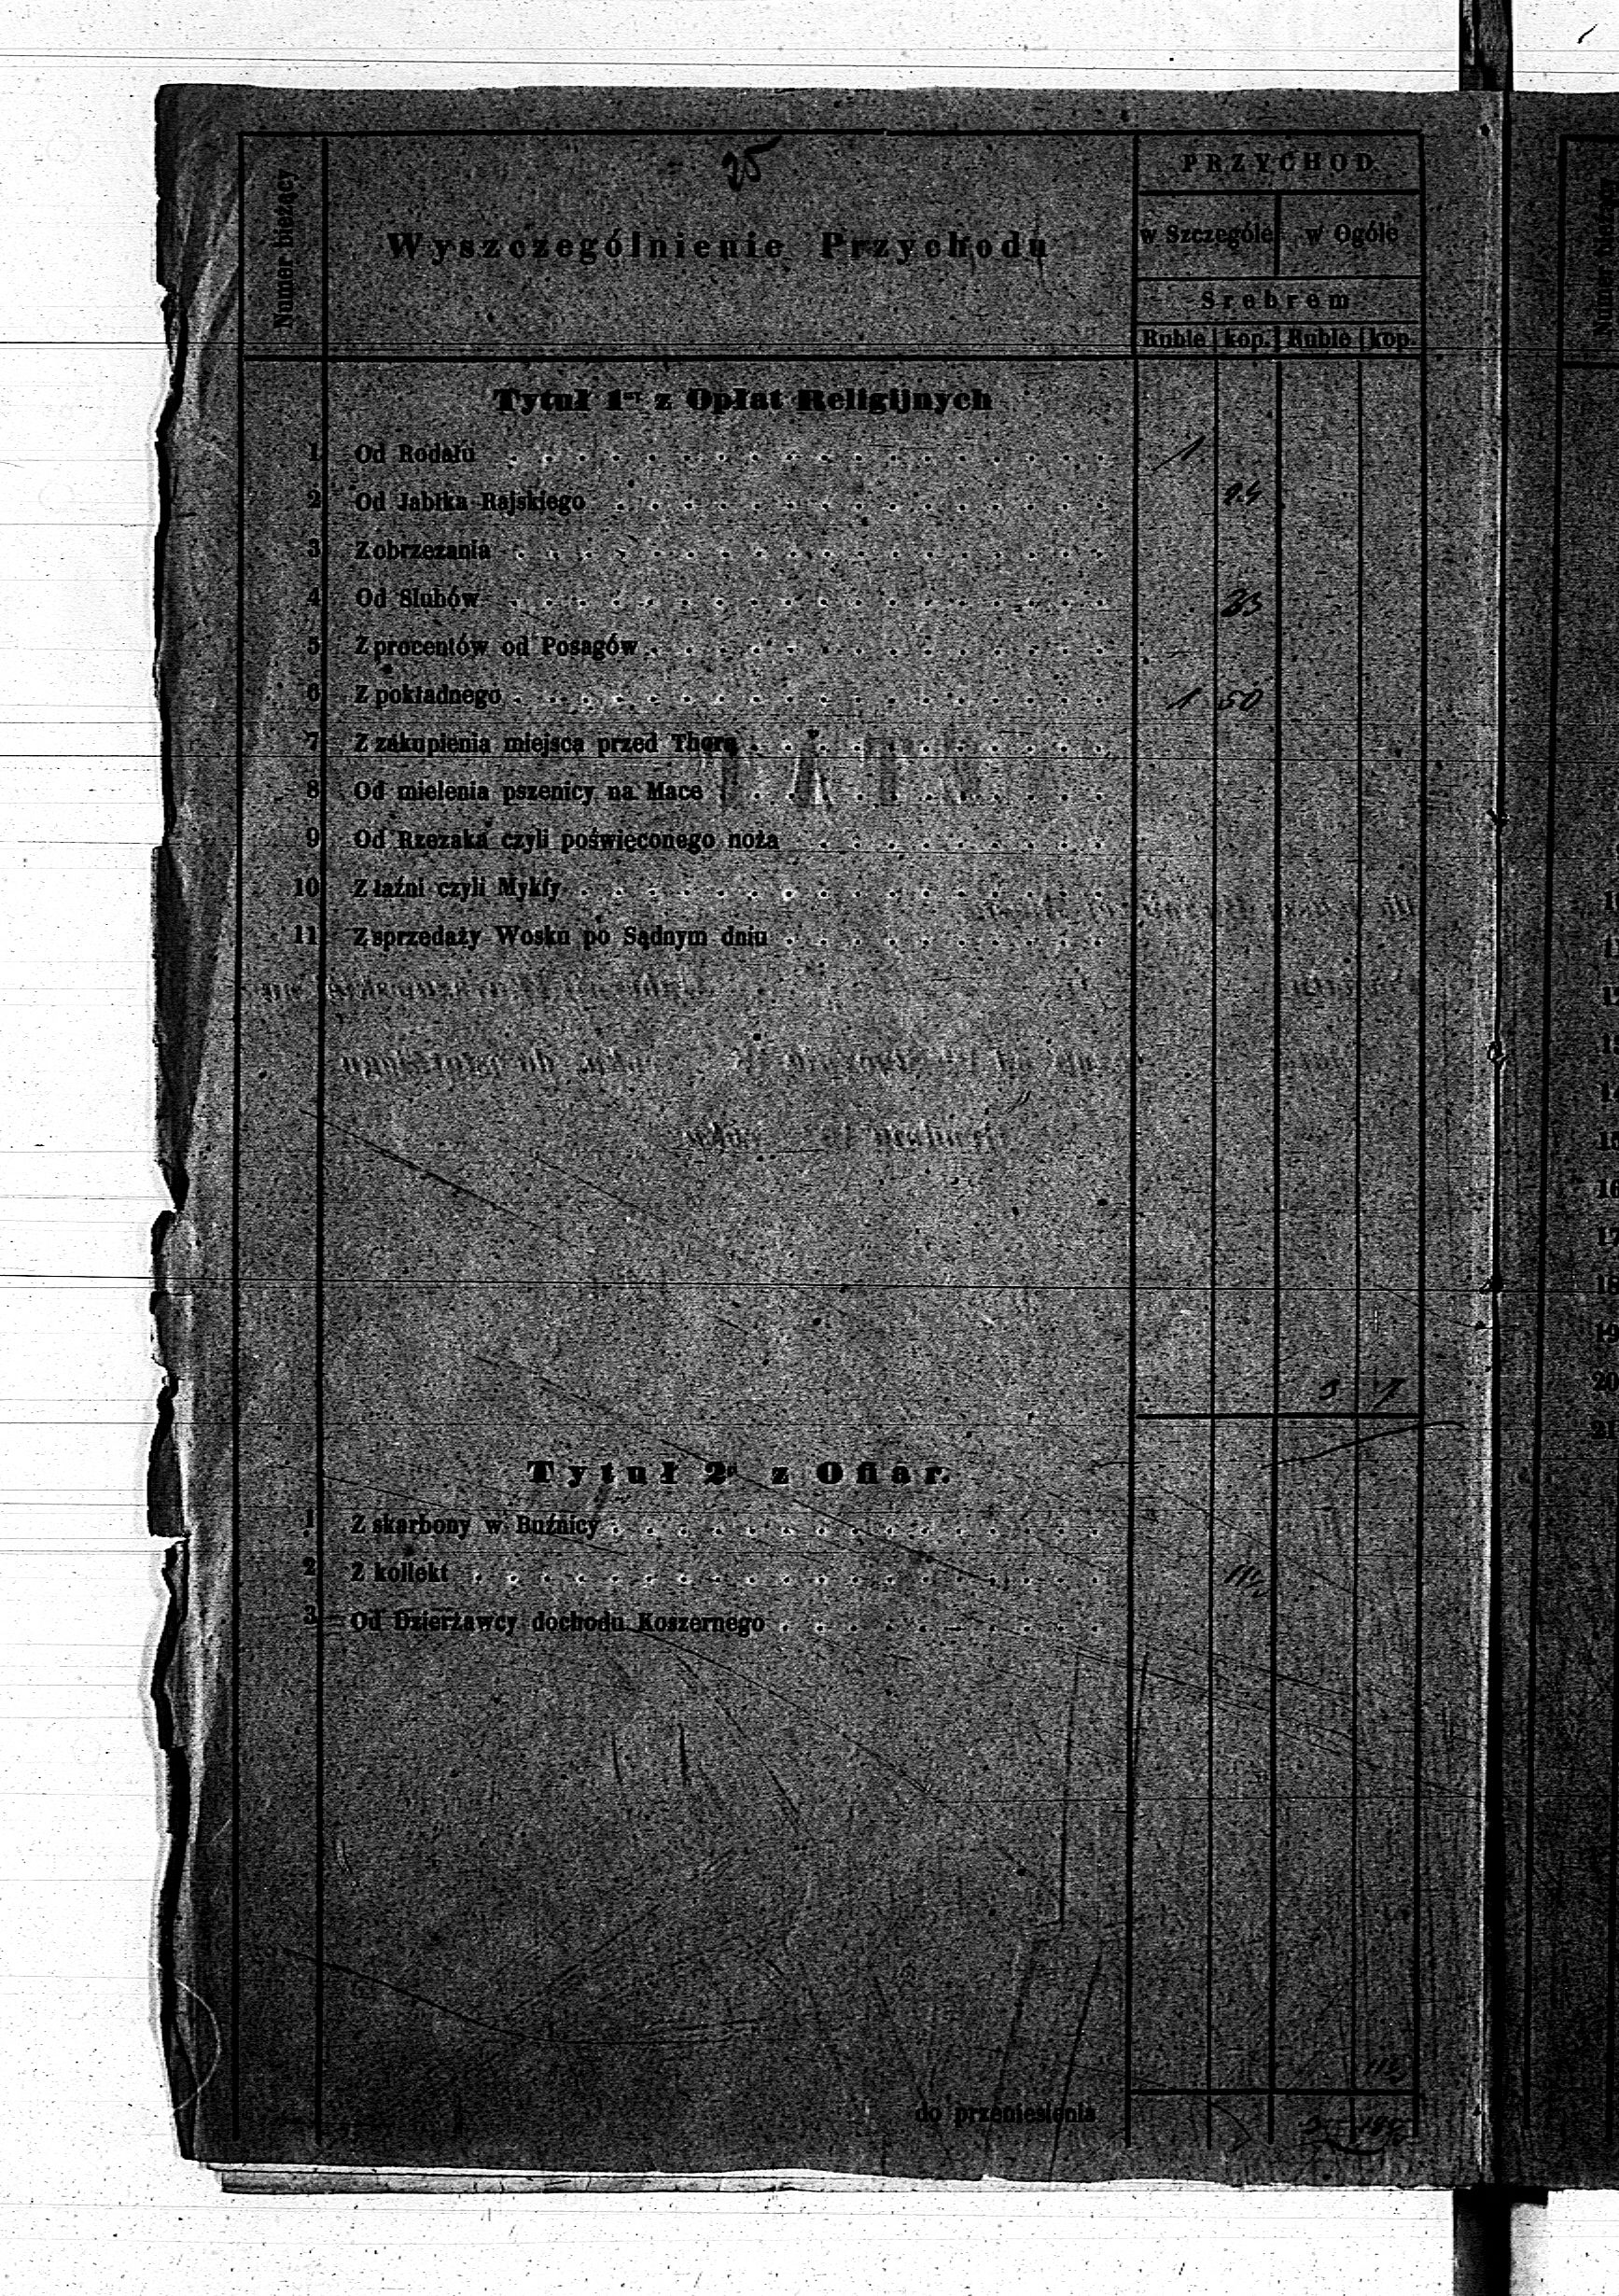 25
Numer bieżący
Wyszczególnienie Przychodu
PRZYCHOD
w Szczególe w Ogóle
Srebrem
Ruble kop. Ruble kop.
Tytuł 1szy z Opłat Religijnych
1 Od Rodału 1
2 Od Jabłka Rajskiego
3 Z obrzezania
4 Od Slubów
5 Z procentów od Posagów
6 Z pokładnego 1 50
7 Z zakupienia miejsca przed Thorą
8 Od mielenia pszenicy na Mace
9 Od Rzezaka czyli poświęconego noża
10 Z łaźni czyli Mykfy
11 Z sprzedaży Wosku po Sądnym dniu
3 7
Tytuł 2gi z Ofiar.
1 Z skarbony w Buźnicy
2 Z kollekt 11½
3 Od Dzierżawcy dochodu Koszernego
11½
do przeniesienia 3 18½